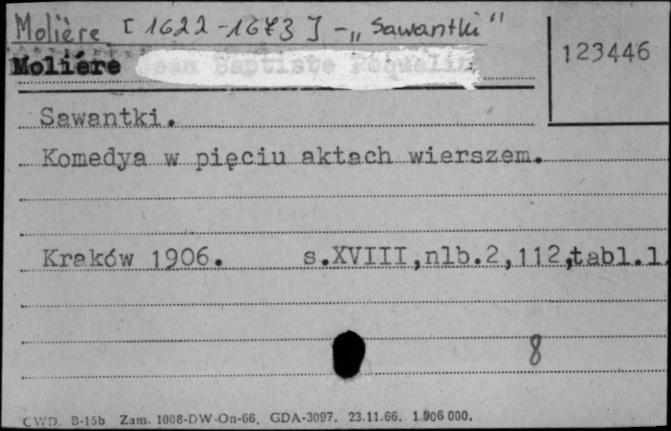 Molière [1622-1673] - „Sawantki"
Moliére Jean Baptiste Poquelin
123446
Sawantki.
Komedya w pięciu aktach wierszem.
Kraków 1906. s.XVIII,nlb.2,112,tabl.1.
8
CWD. B-15b Zam. 1008-DW-On-66. GDA-3097. 23.11.66. 1.906 000.